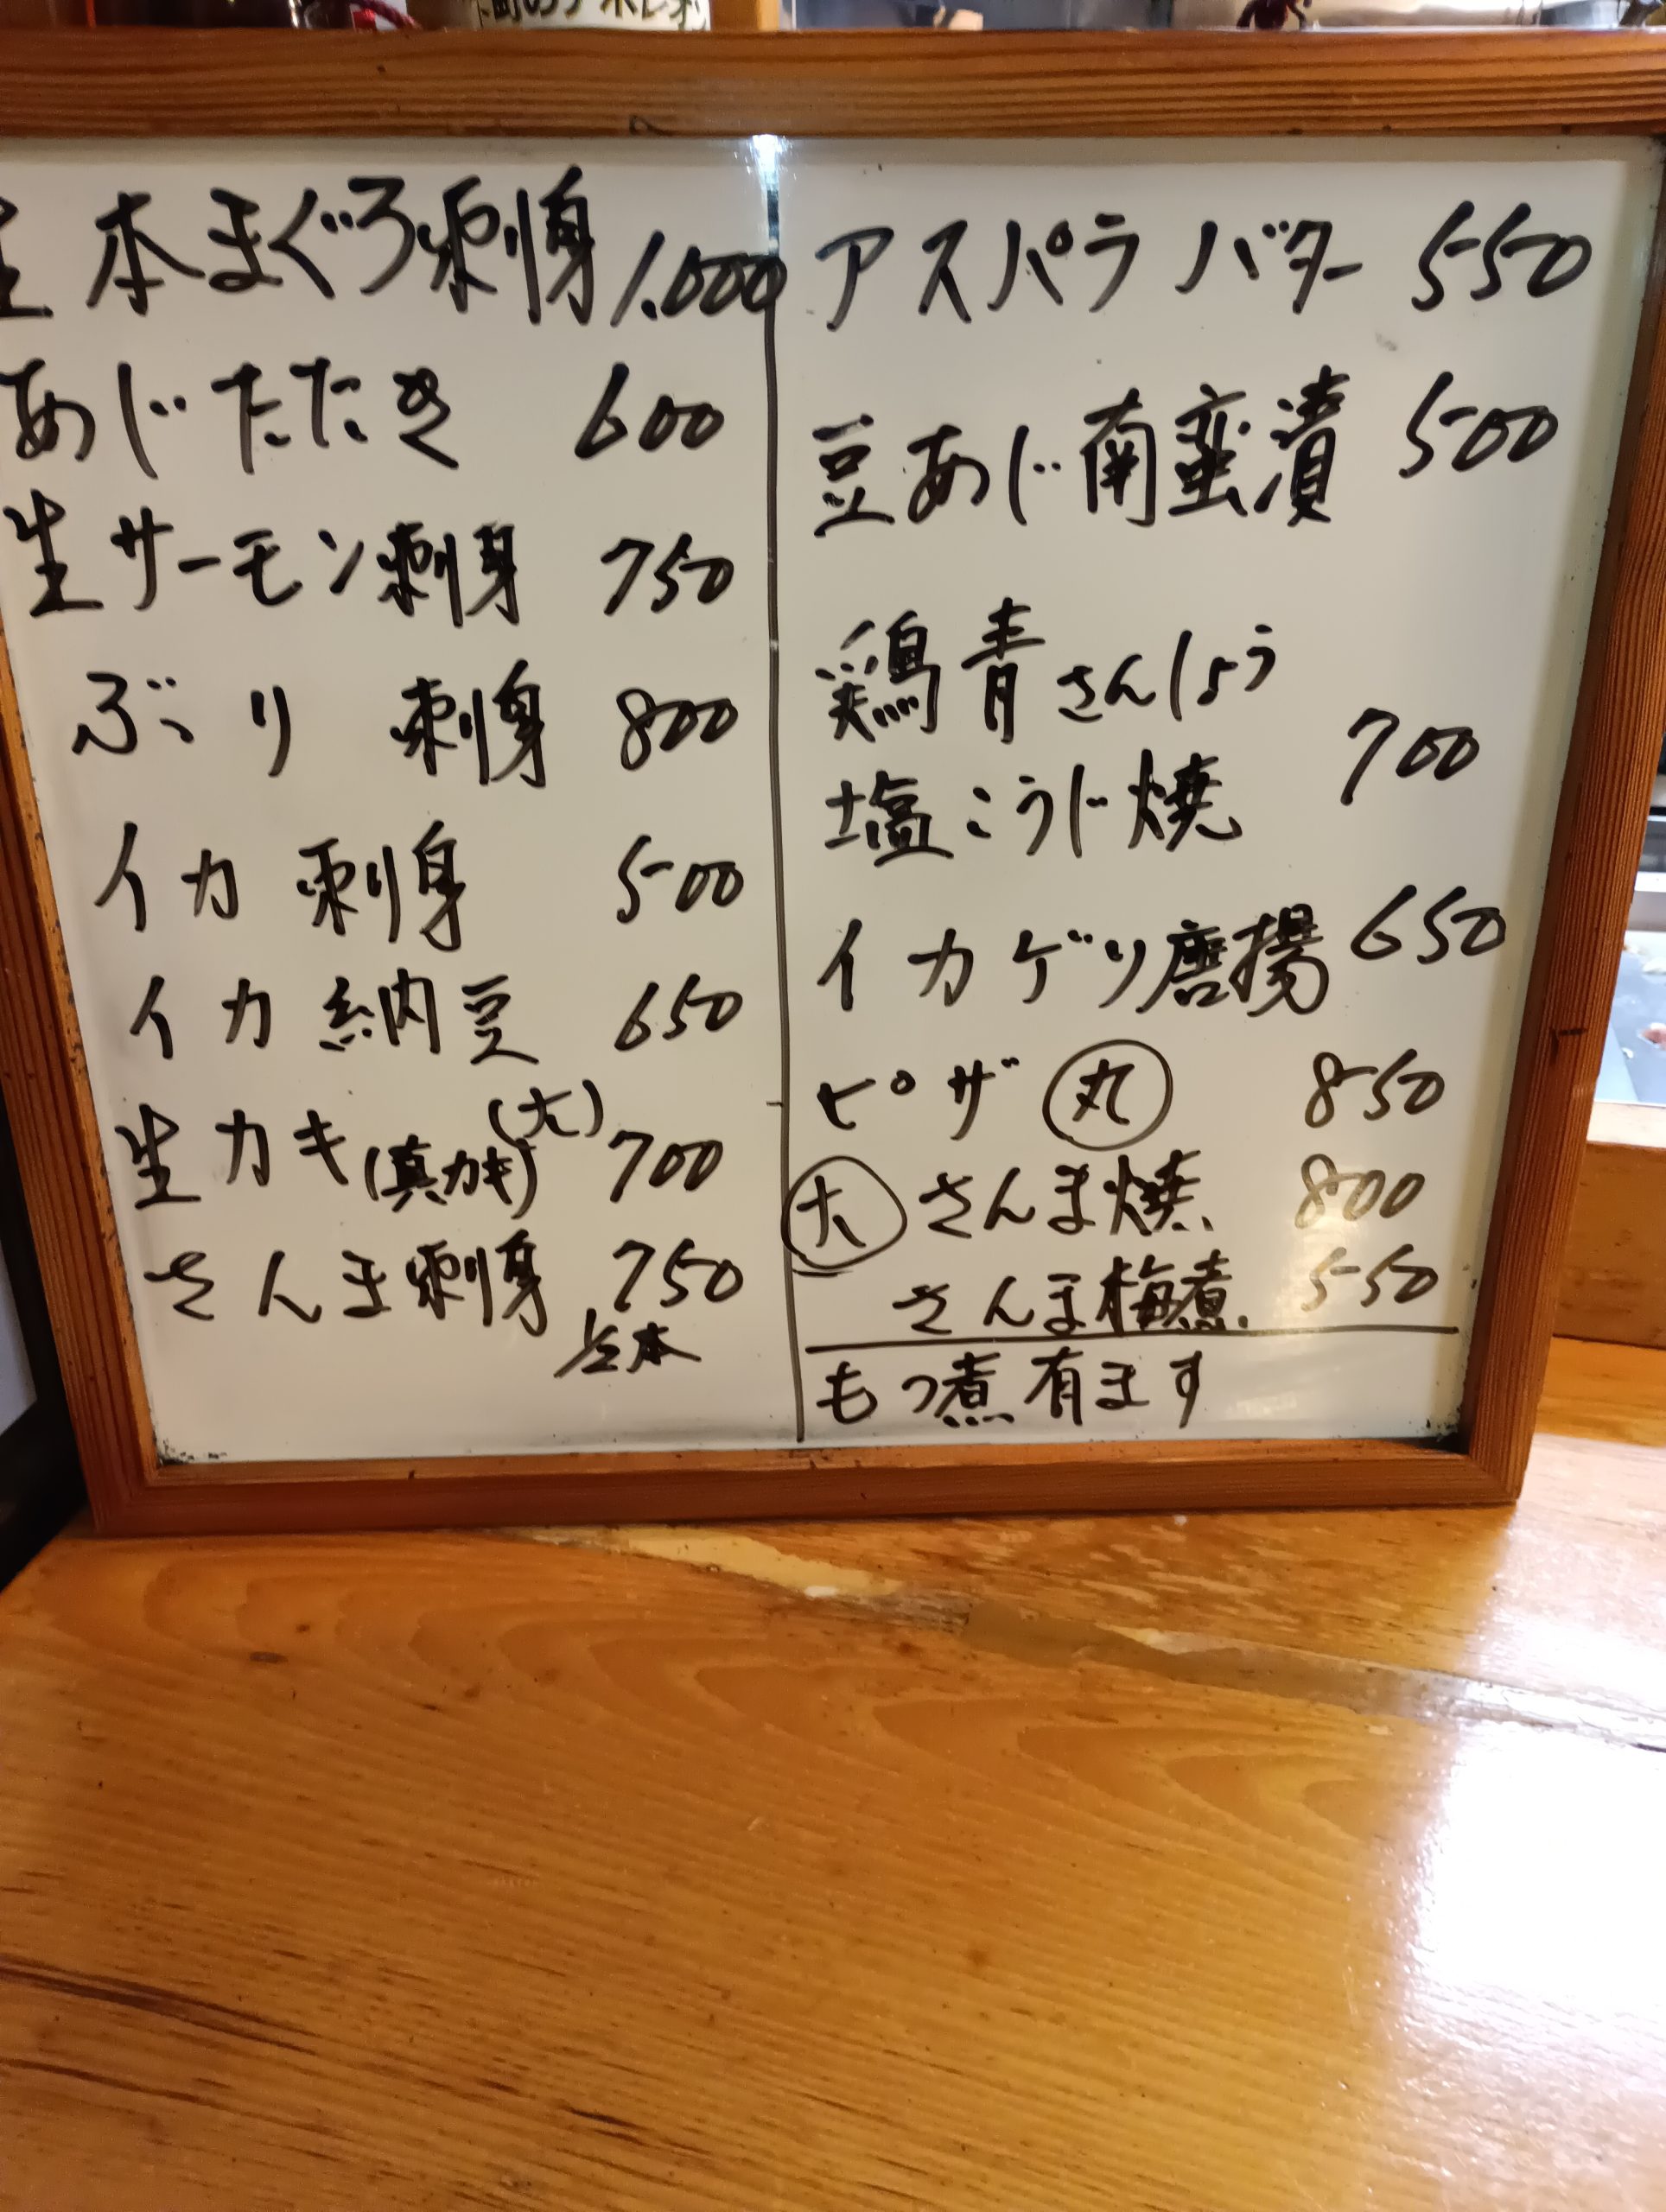 生本まぐろ刺身 1.000
あじたたき 600
生サーモン刺身 750
ぶり 刺身 800
イカ 刺身 500
イカ 納豆 650
生カキ(真カキ)(大) 700
さんま刺身 750
1/2本
アスパラ バター 550
豆あじ南蛮漬 500
鶏青さんしょう
塩こうじ焼 700
イカゲソ唐揚 650
ピザ 丸 850
大 さんま焼 800
さんま梅煮 550
もつ煮有ます